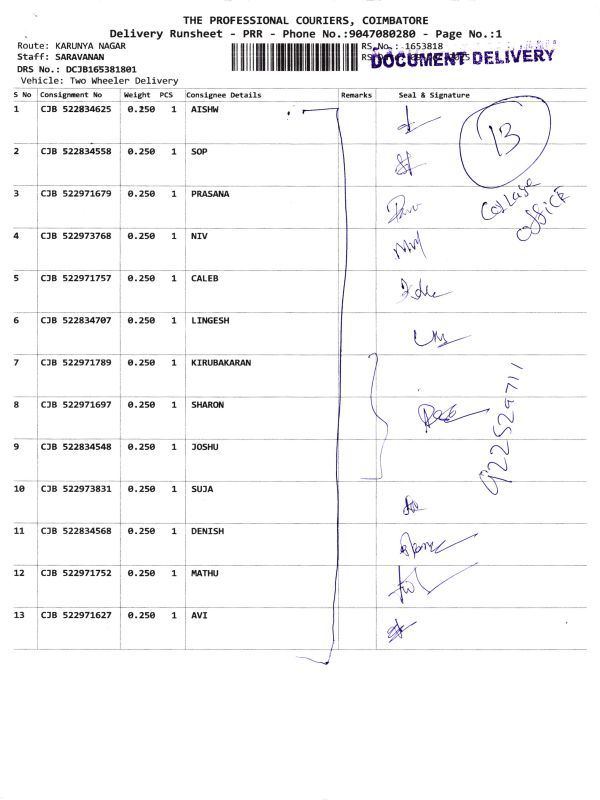 THE PROFESSIONAL COURIERS, COIMBATORE
Delivery Runsheet - PRR - Phone No.:9047080280 - Page No.:1
Route: KARUNYA NAGAR
RS No.: 1653818
Staff: SARAVANAN
DOCUMENT DELIVERY
DRS No.: DCJB165381801
Vehicle: Two Wheeler Delivery
S No Consignment No Weight PCS Consignee Details Remarks Seal & Signature
1 CJB 522834625 0.250 1 AISHW
13
2 CJB 522834558 0.250 1 SOP
3 CJB 522971679 0.250 1 PRASANA
College
office
4 CJB 522973768 0.250 1 NIV
5 CJB 522971757 0.250 1 CALEB
6 CJB 522834707 0.250 1 LINGESH
7 CJB 522971789 0.250 1 KIRUBAKARAN
8 CJB 522971697 0.250 1 SHARON
9 CJB 522834548 0.250 1 JOSHU
10 CJB 522973831 0.250 1 SUJA
11 CJB 522834568 0.250 1 DENISH
12 CJB 522971752 0.250 1 MATHU
13 CJB 522971627 0.250 1 AVI